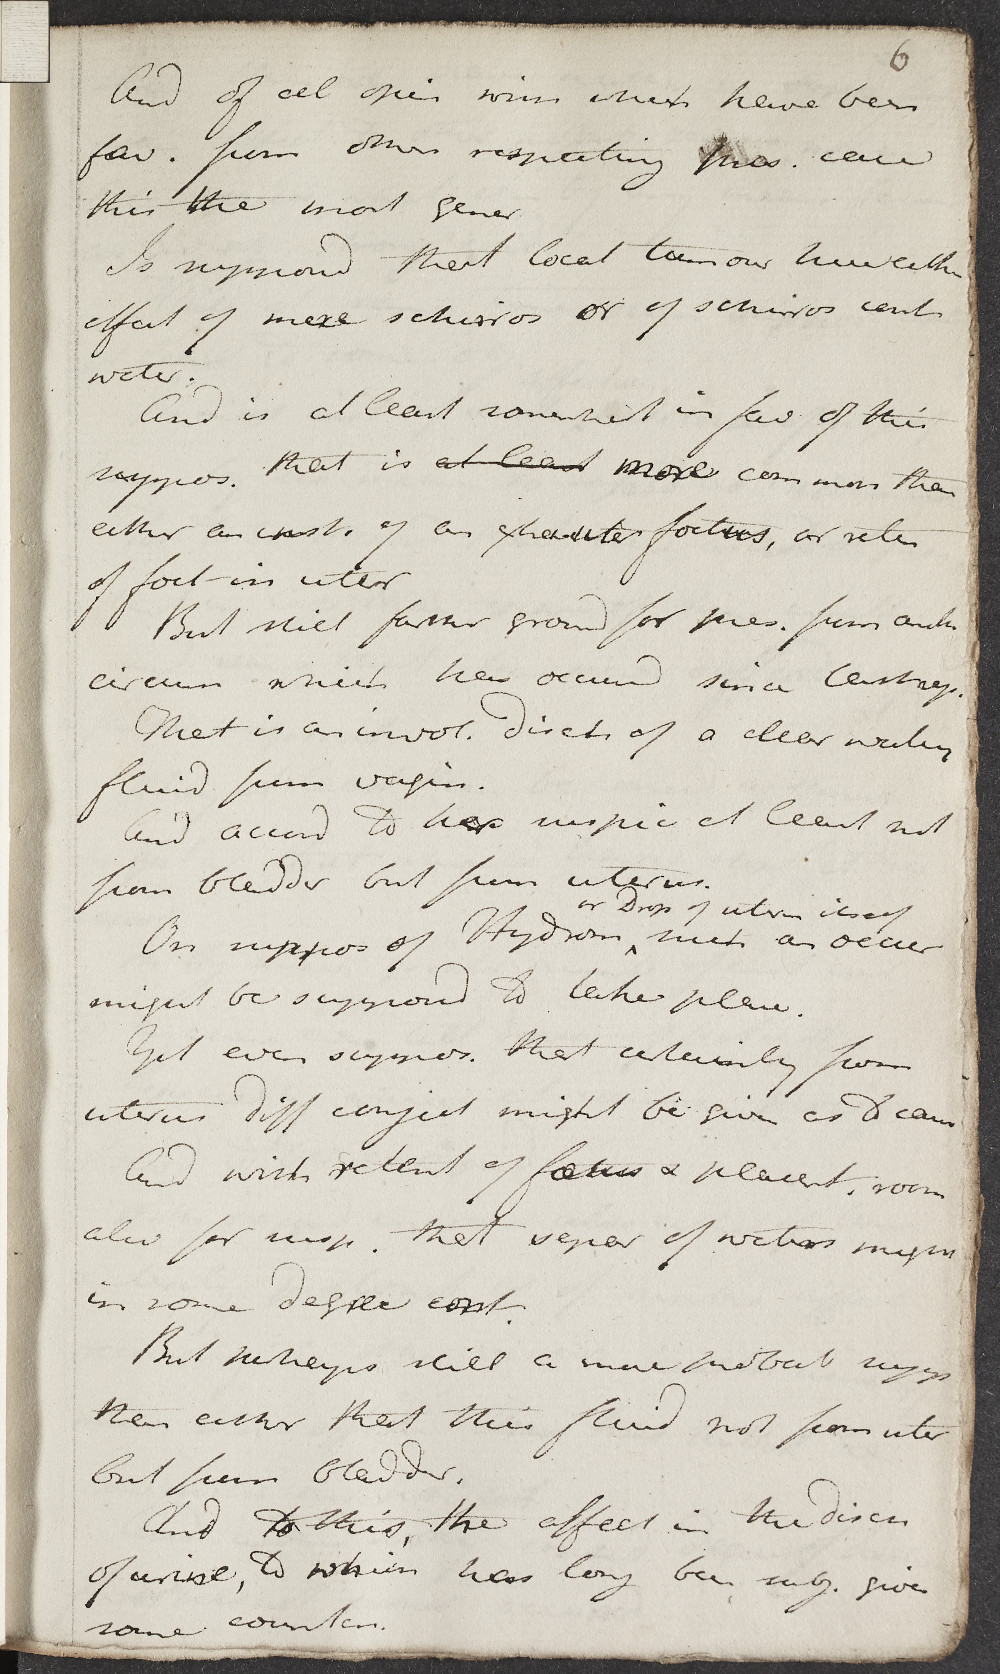 6
And of all opin wind which have been
fav. from others respecting pres. case
this the most gener
Is suppond that local tumour here either
effect of mere schirros or of schirros cont
water.
And is at least somewhat in fav of this
suppos. that is at least more common than
either an inst. of an extrauter foetus, or reten
of foet in uter
But still farther ground for pres. from anoth
circum which has occurd since last rep.
That is an invol. disch of a clear watery
fluid from vagin.
And accord to her suspic at least not
from bladder but from uterus.
or Drops of uterus itself
On suppos of Hydrom ^ such an occur
might be suppond to take place.
Yet even suppos. that certainly from
uterus diff conject might be given as to caus
And with retent of foetus & placent. room
also for susp. that separ of waters might
in some degree cont.
But perhaps still a more probab suppos
than either that this fluid not from uter
but from bladder.
And to this, the affect in the disch
of urine, to which has long been subj. gives
some counten.